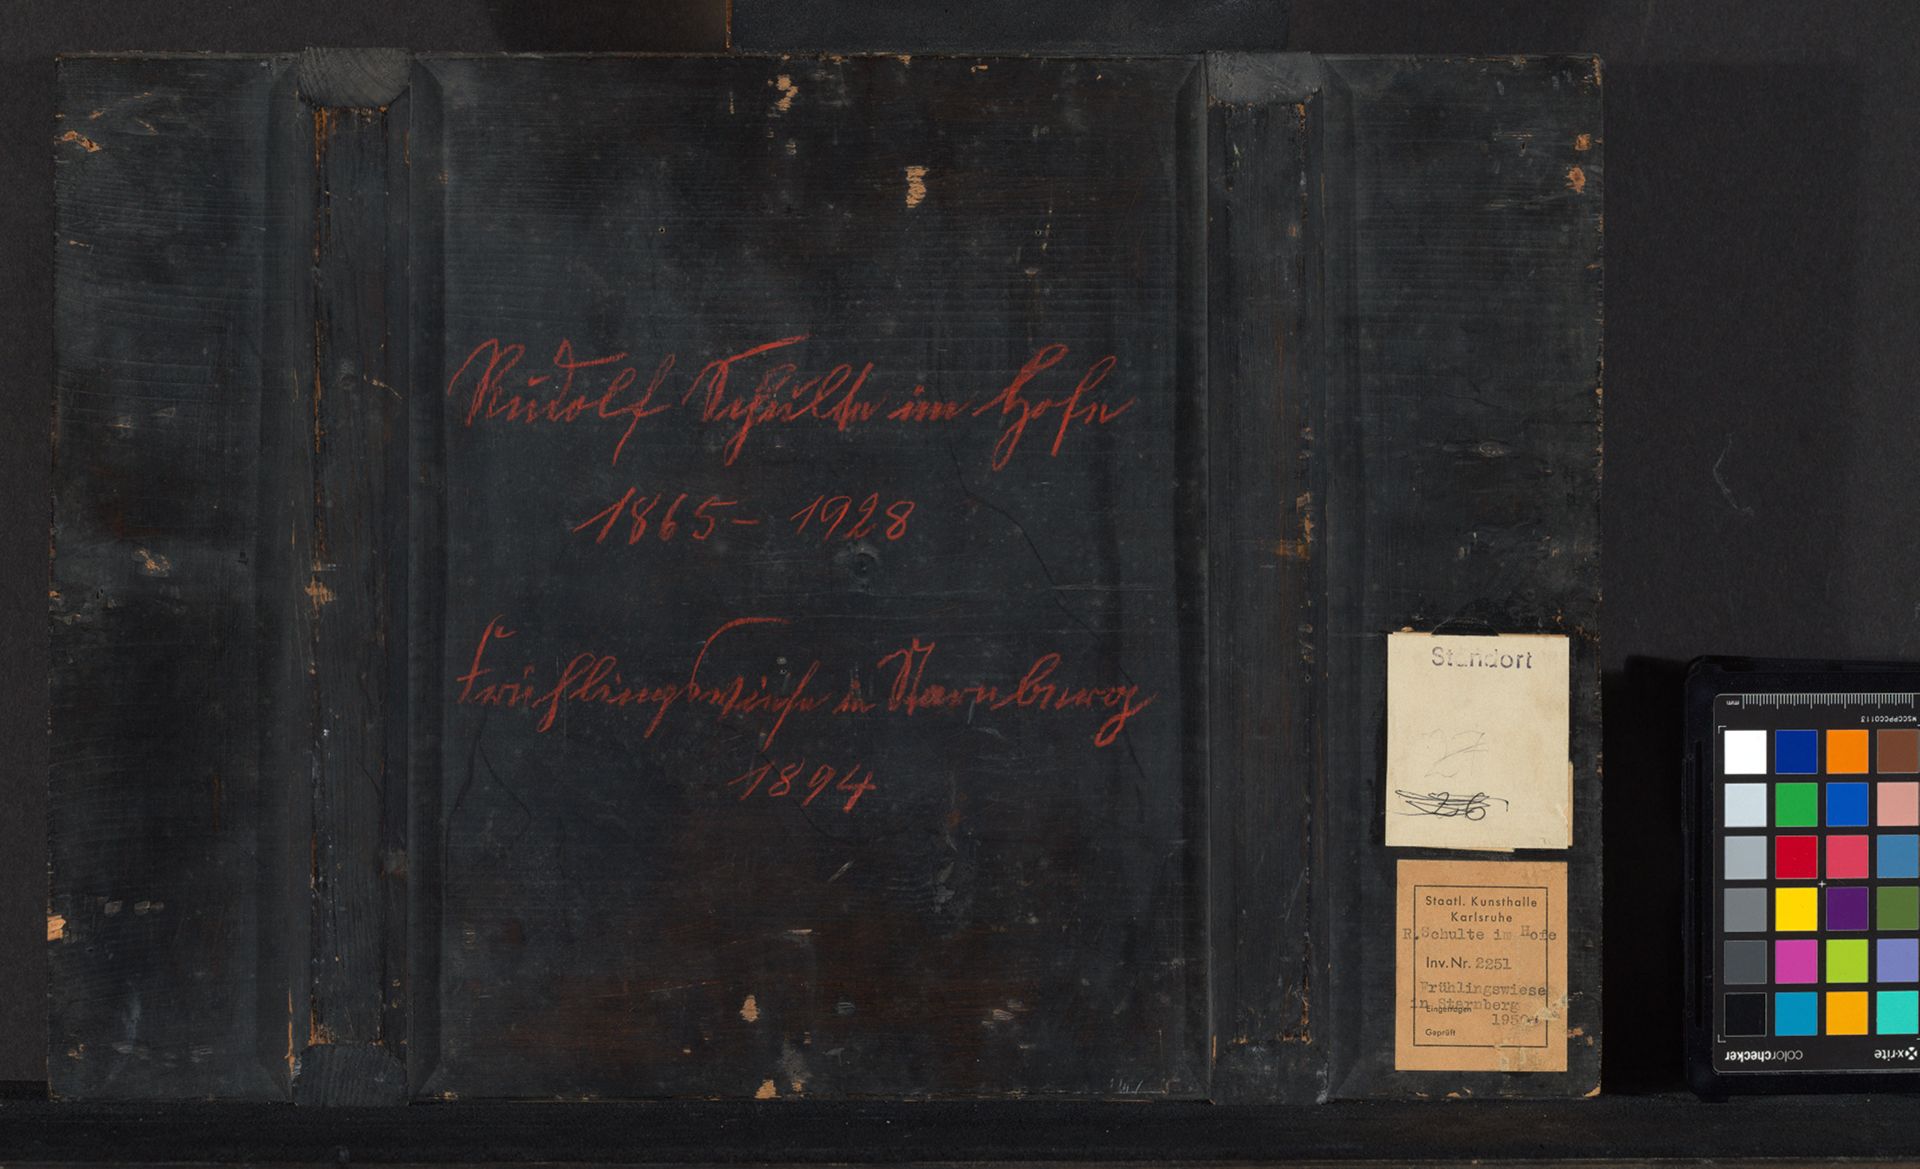 Rudolf Schulte im Hofe
1865 - 1928
Frühlingswiese in Starnberg
1894
Standort
27
26
Staatl. Kunsthalle
Karlsruhe
R.Schulte im Hofe
Inv. Nr. 2251
Frühlingswiese
in Starnberg
Eingetragen
1950
Geprüft
mm
MSCCPPCC0113
colorchecker
x-rite